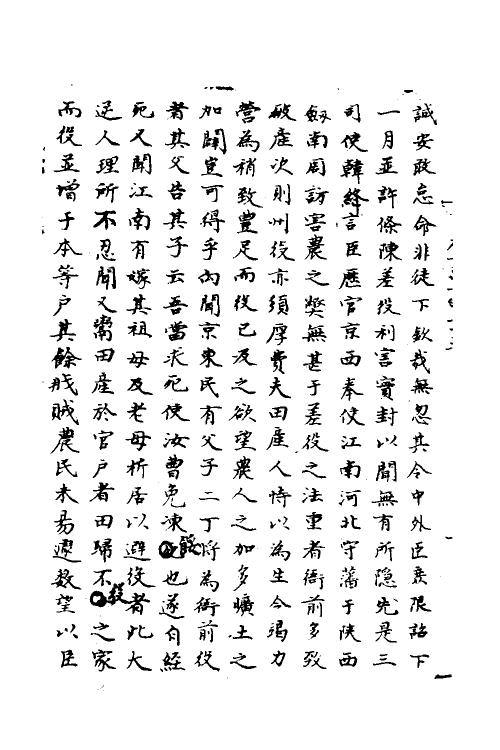 誠安敢忘命非徒下欽哉無忽其令中外臣庶限詔下
一月並許條陳差役利害實封以聞無有所隱先是三
司使韓絳言臣歷官京西奉使江南河北守藩于陝西
劔南周訪害農之弊無甚于差役之法重者衙前多致
破産次則州役亦須厚費夫田産人恃以為生今竭力
營為稍致豊足而役已及之欲望農人之加多曠土之
加闢豈可得乎向聞京東民有父子二丁將為衙前役
者其父告其子云吾當求死使汝曹免凍餒也遂自經
死又聞江南有嫁其祖母及老母析居以避役者此大
逆人理所不忍聞又鬻田産於官户者田歸不役之家
而役並增于本等户其餘戕賊農民未易遽數望以臣